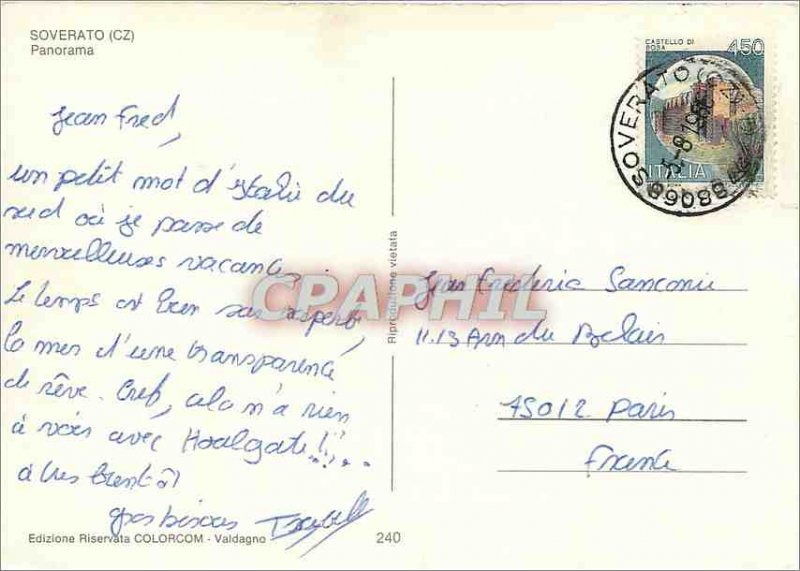 SOVERATO (CZ)
Panorama
CASTELLO DI
ROSA
450
ITALIA
88068 SOVERATO (CZ)
5-8 19
Jean Fred,
un petit mot d'Italie du
sud où je passe de
merveilleuses vacances
Le temps est bien sur superbe,
la mer d'une transparence
de rêve. Bref, cela n'a rien
à voir avec Houlgate!!...
à très bientôt
Gros bisous
Reproduzione vietata
Jean Frederic
11.13 du
75012 Paris
France
CPAPHIL
Edizione Riservata COLORCOM - Valdagno
240